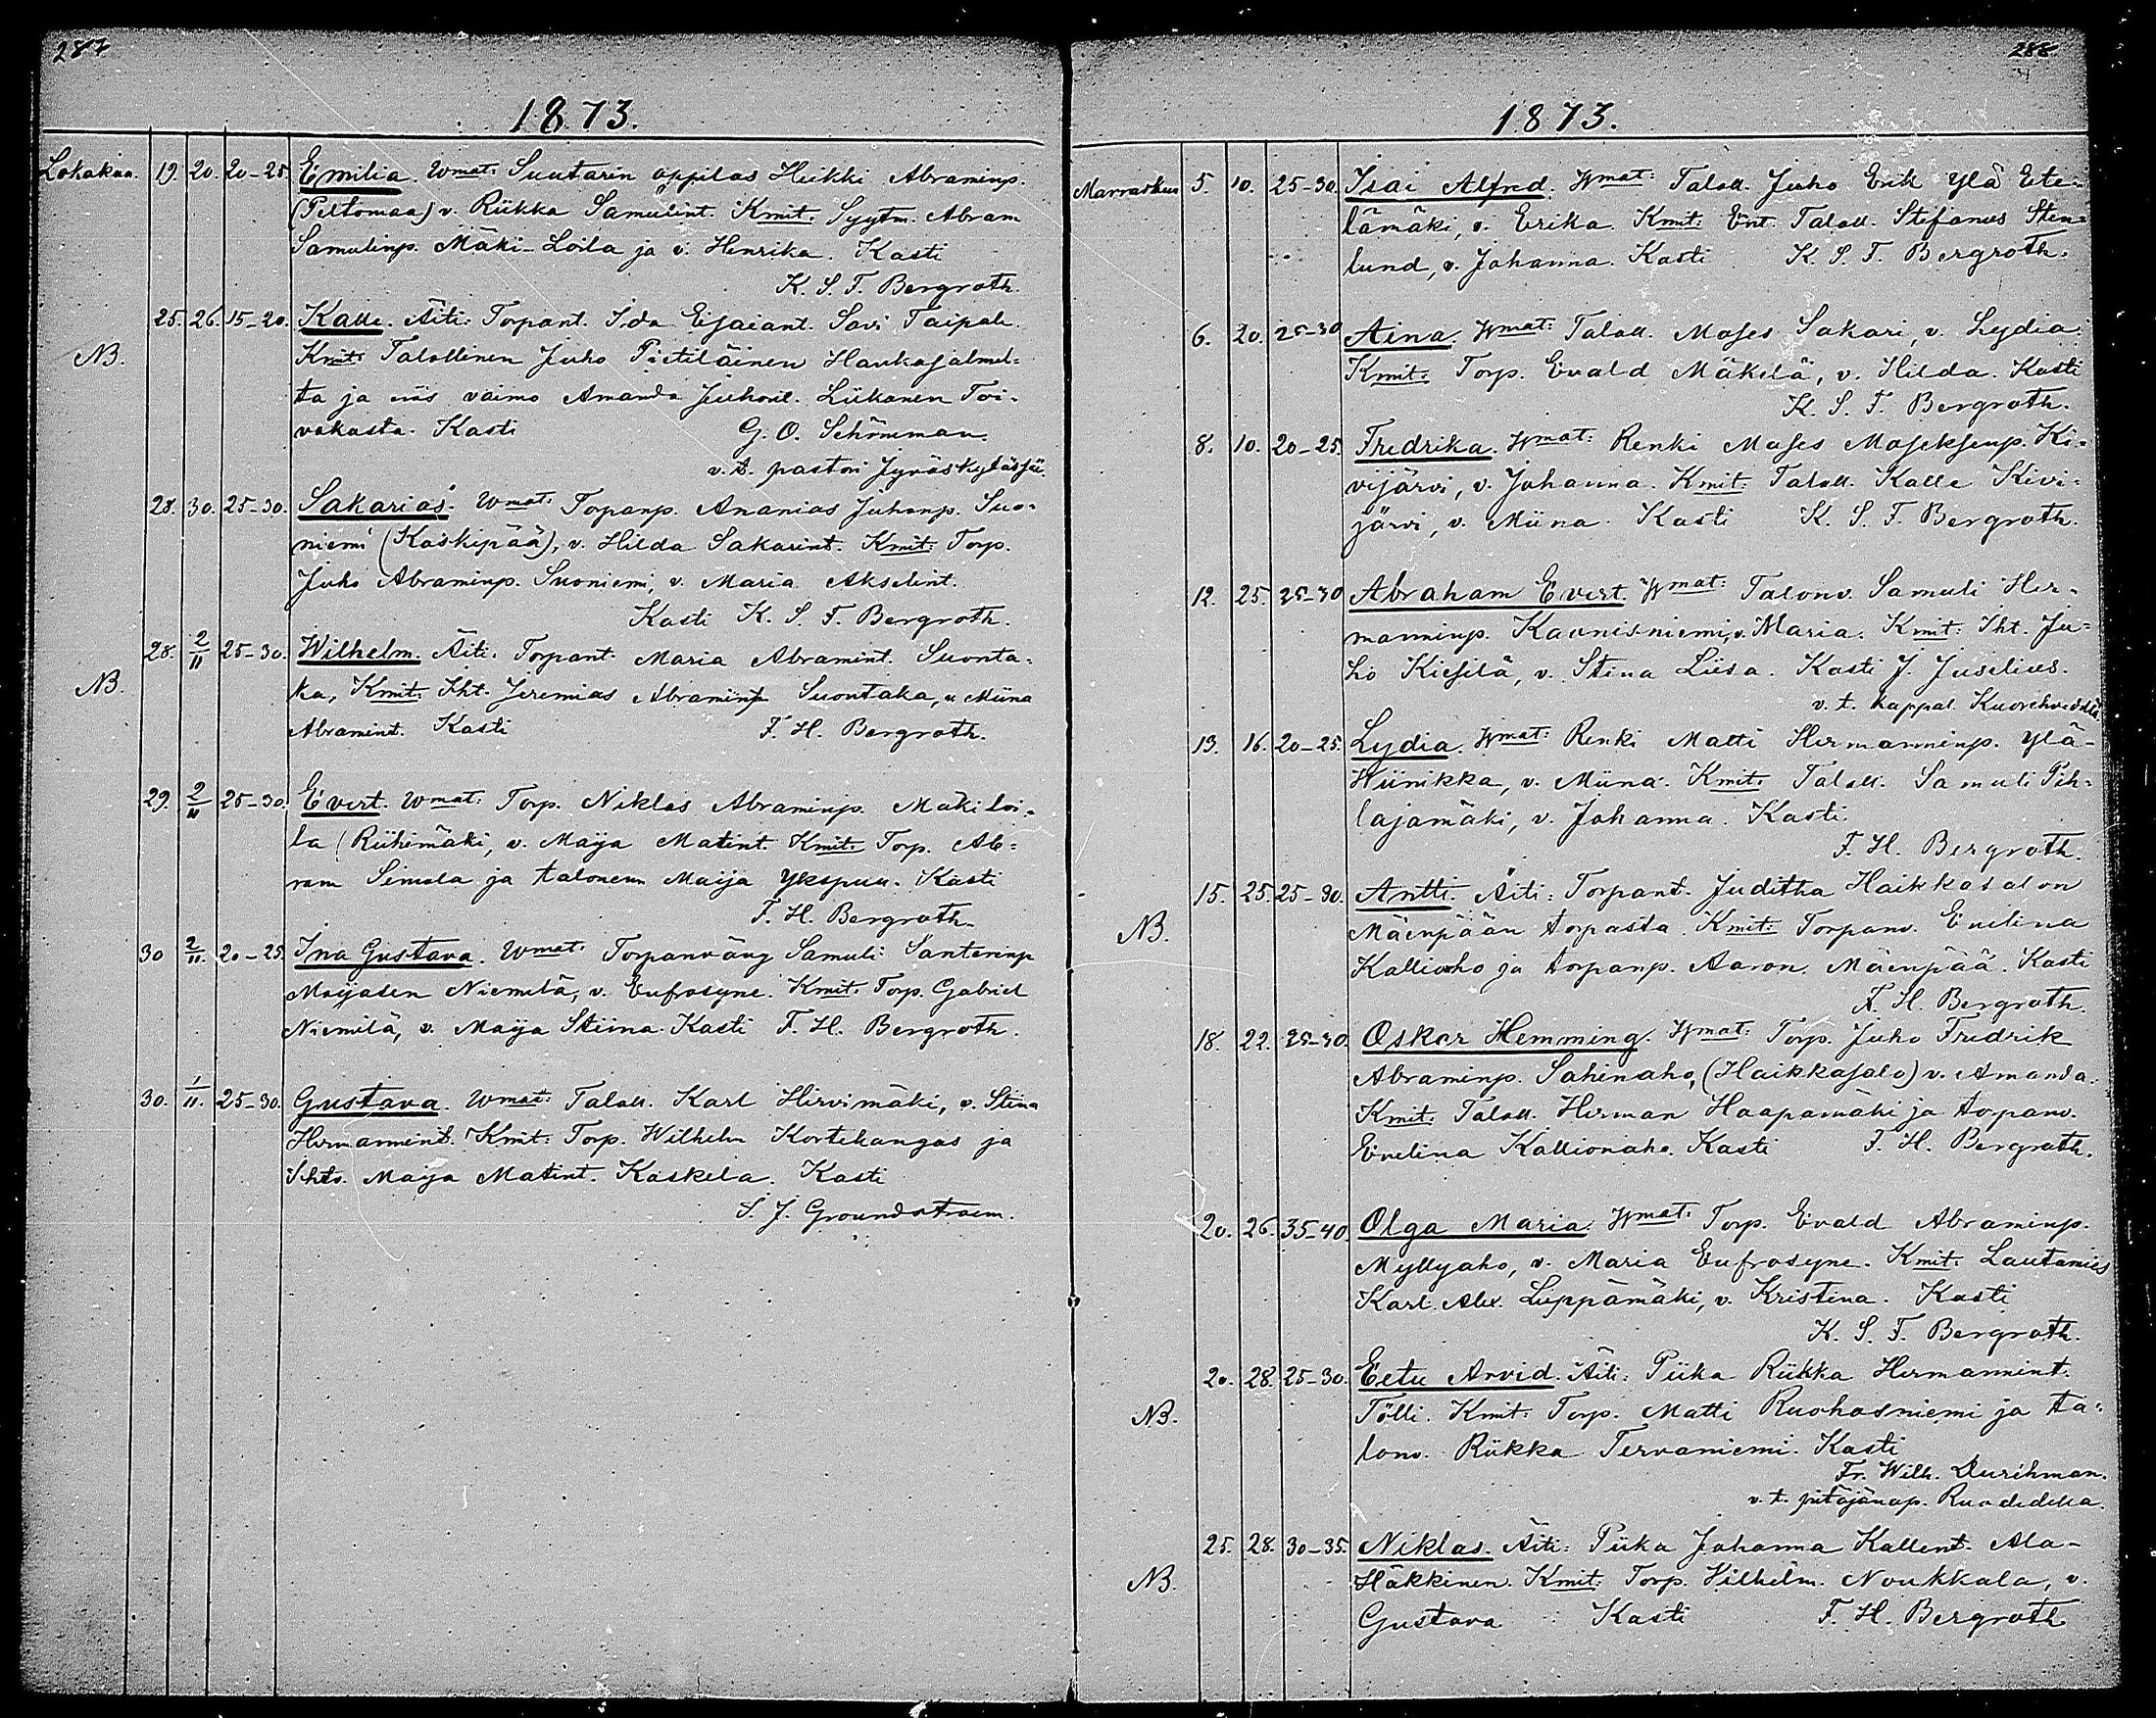 287
1873.
Lokakuu. 19. 20. 20-25. Emilia. Wmat: Suutarin oppilas Heikki Abraminp.
(Peltomaa) v. Riikka Samulint. Kmit. Syytm. Abram
Samulinp. Mäki-Loila ja v. Henrika. Kasti
K. S. F. Bergroth.
25. 26. 15-20. Kalle. Äiti: Torpant. Ida Esaiant. Savi Taipale.
NB. Kmit: Talollinen Juho Pietiläinen Haukasalmel-
ta ja vaimo Amanda Juhont. Liikanen Toi-
vakasta. Kasti G. O. Schönman.
v. t. pastori Jyväskylässä.
28. 30. 25-30. Sakarias. Wmat: Torpanp. Ananias Juhonp. Suo-
niemi (Kaskipää), v. Hilda Sakarint. Kmit: Torp.
Juho Abraminp. Suoniemi, v. Maria Akselint.
Kasti K. S. F. Bergroth.
28. 2/11 25-30. Wilhelm. Äiti: Torpant. Maria Abramint. Suonta-
NB. ka, Kmit: Iht. Jeremias Abraminp Suontaka, v. Miina
Abramint. Kasti F. H. Bergroth.
29. 2/11 25-30. Evert. Wmat: Torp. Niklas Abraminp. Mäki loi-
la (Riihimäki, v. Maija Matint. Kmit: Torp. Ab-
ram Simola ja talonem Maija Ykspuu. Kasti
F. H. Bergroth.
30 2/11. 20-25. Ina Gustava. Wmat: Torpanvävy Samuli Santerinp
Maijalen Niemelä, v. Eufrosyne. Kmit: Torp. Gabriel
Niemilä, v. Maija Stiina. Kasti F. H. Bergroth.
30. 1/11. 25-30. Gustava. Wmat: Taloll. Karl Hirvimäki, v. Stina
Hermannint. Kmit: Torp. Wilhelm Kortekangas ja
Ihts. Maija Matint. Kaskela. Kasti
S. J. Groundstroem.
288
1873.
Marraskuu 5. 10. 25-30. Isai Alfred. Wmat: Taloll. Juho Erik Ylä Ete-
lämäki, v. Erika. Kmit: Ent. Taloll. Stefanus Sten-
lund, v. Johanna. Kasti K. S. F. Bergroth.
6. 20. 25-30 Aina. Wmat: Taloll. Moses Sakari, v. Lydia.
Kmit: Torp. Evald Mäkelä, v. Hilda. Kasti
K. S. F. Bergroth.
8. 10. 20-25. Fredrika. Wmat: Renki Moses Moseksenp. Ki-
vijärvi, v. Johanna. Kmit: Taloll. Kalle Kivi-
järvi, v. Miina. Kasti K. S. F. Bergroth.
12. 25. 25-30 Abraham Evert. Wmat: Talonv. Samuli Her-
manninp. Kaunisniemi, v. Maria. Kmit: Iht. Ju-
ho Kiesilä, v. Stina Liisa. Kasti J. Juselius.
v. t. kappal. Kuorehvedellä
13. 16. 20-25. Lydia. Wmat: Renki Matti Hermanninp. Ylä-
Hiinikka, v. Miina. Kmit: Taloll. Samuli Pih-
lajamäki, v. Johanna. Kasti.
F. H. Bergroth.
15. 25. 25-30. Antti. Äiti: Torpant. Juditha Haikkasalon
NB. Mäenpään torpasta. Kmit: Torpanv. Evelina
Kallioaho ja torpanp. Aaron Mäenpää. Kasti
F. H. Bergroth.
18. 22. 25-30. Oskar Hemming. Wmat: Torp. Juho Fredrik
Abraminp. Sahinaho, (Haikkasalo) v. Amanda.
Kmit: Taloll. Herman Haapamäki ja torpanv.
Evelina Kallionaho. Kasti F. H. Bergroth.
20. 26. 35-40. Olga Maria. Wmat: Torp. Evald Abraminp.
Myllyaho, v. Maria Eufrosyne. Kmit: Lautamies
Karl. Alex. Luppämäki, v. Kristina. Kasti
K. S. F. Bergroth.
20. 28. 25-30. Eetu Arvid. Äiti: Piika Riikka Hermannint.
NB. Tölli. Kmit: Torp. Matti Ruohosniemi ja ta-
lonv. Riikka Tervaniemi. Kasti
Fr. Wilh. Durchman.
v. t. pitäjänap. Ruovedellä.
25. 28. 30-35. Niklas. Äiti: Piika Johanna Kallent. Ala-
NB. Häkkinen. Kmit: Torp. Wilhelm. Noukkala, v.
Gustava Kasti F. H. Bergroth